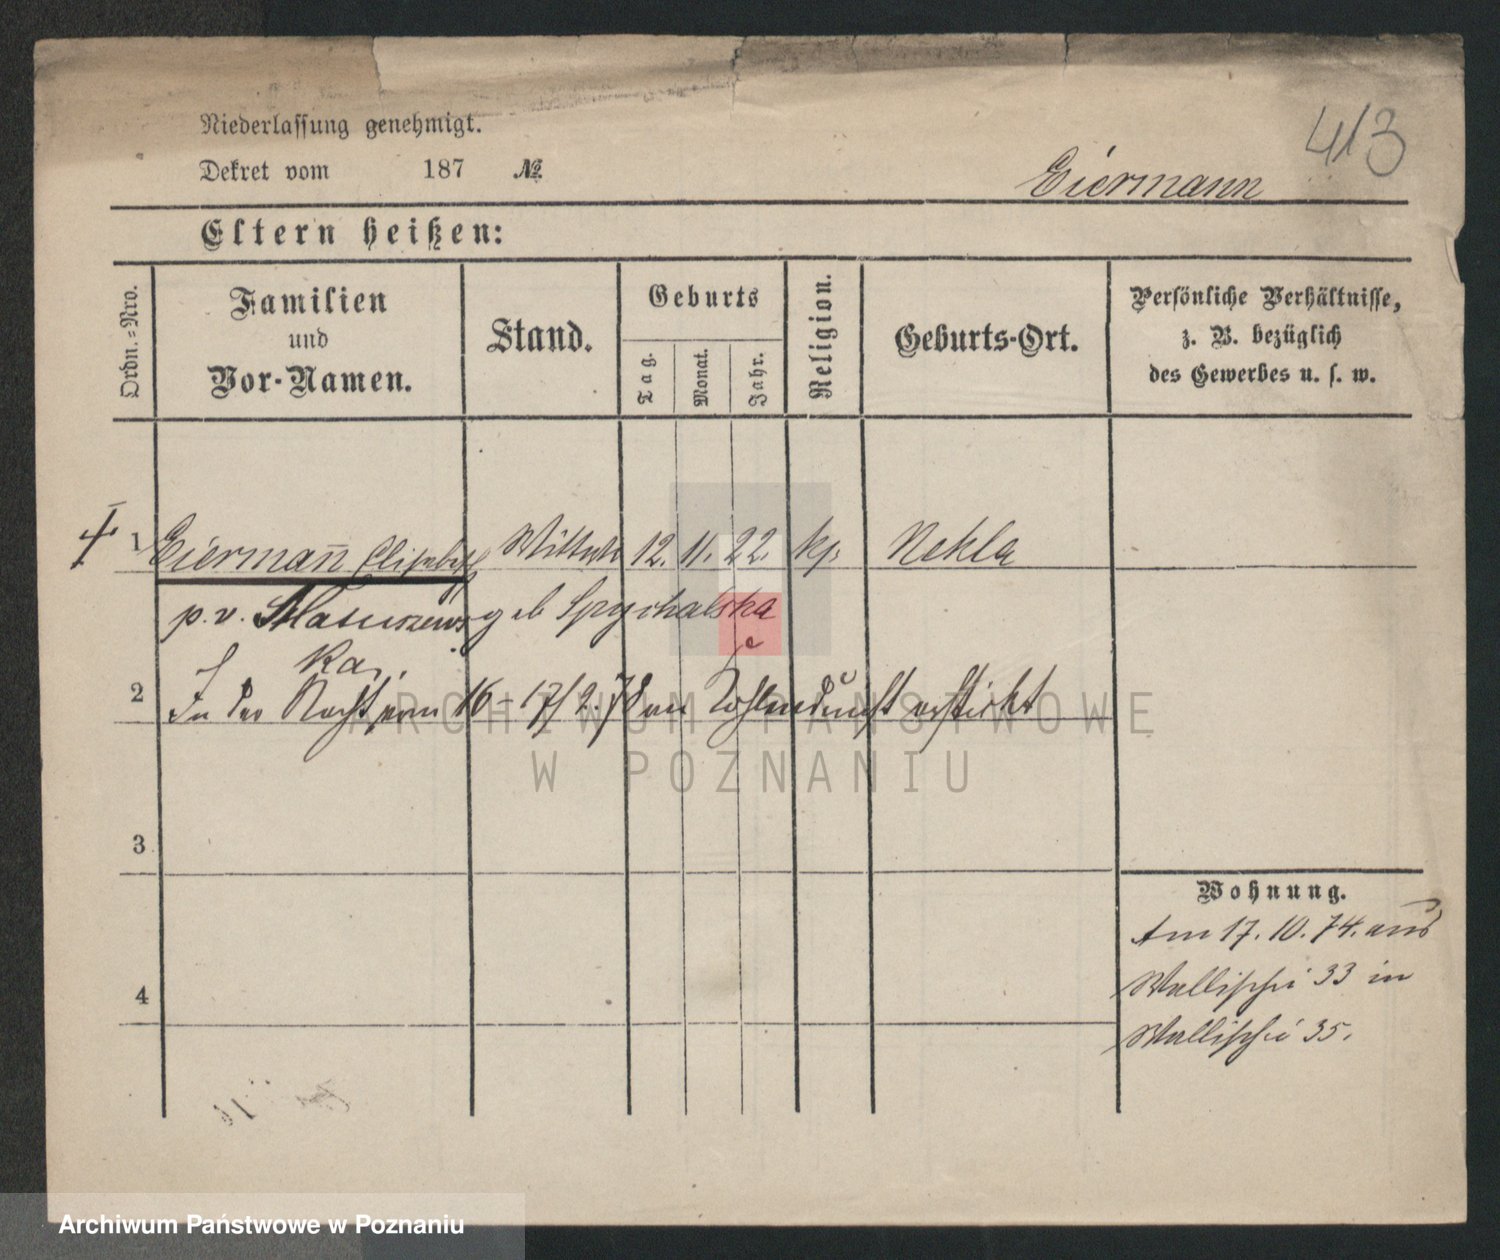 413
Niederlassung genehmigt.
Dekret vom 187 №
Eiermann
Eltern heißen:
Ordn.-Nro.
Familien und Vor-Namen.
Stand.
Geburts
Tag.
Monat.
Jahr.
Religion.
Geburts-Ort.
Persönliche Verhältnisse, z. B. bezüglich des Gewerbes u. s. w.
1 Eiermann Elisabeth Wittwe 12. 11. 22. kp. Nekla
p. v. Matuszews geb Spychalska
ka.
2 In der Nacht vom 16-17/2.78 an Kohlendunst erstickt
3
Wohnung.
Am 17. 10. 74. aus
Wallischei 33 in
4
Wallischei 35.
ARCHIWUM PAŃSTWOWE
W POZNANIU
Archiwum Państwowe w Poznaniu